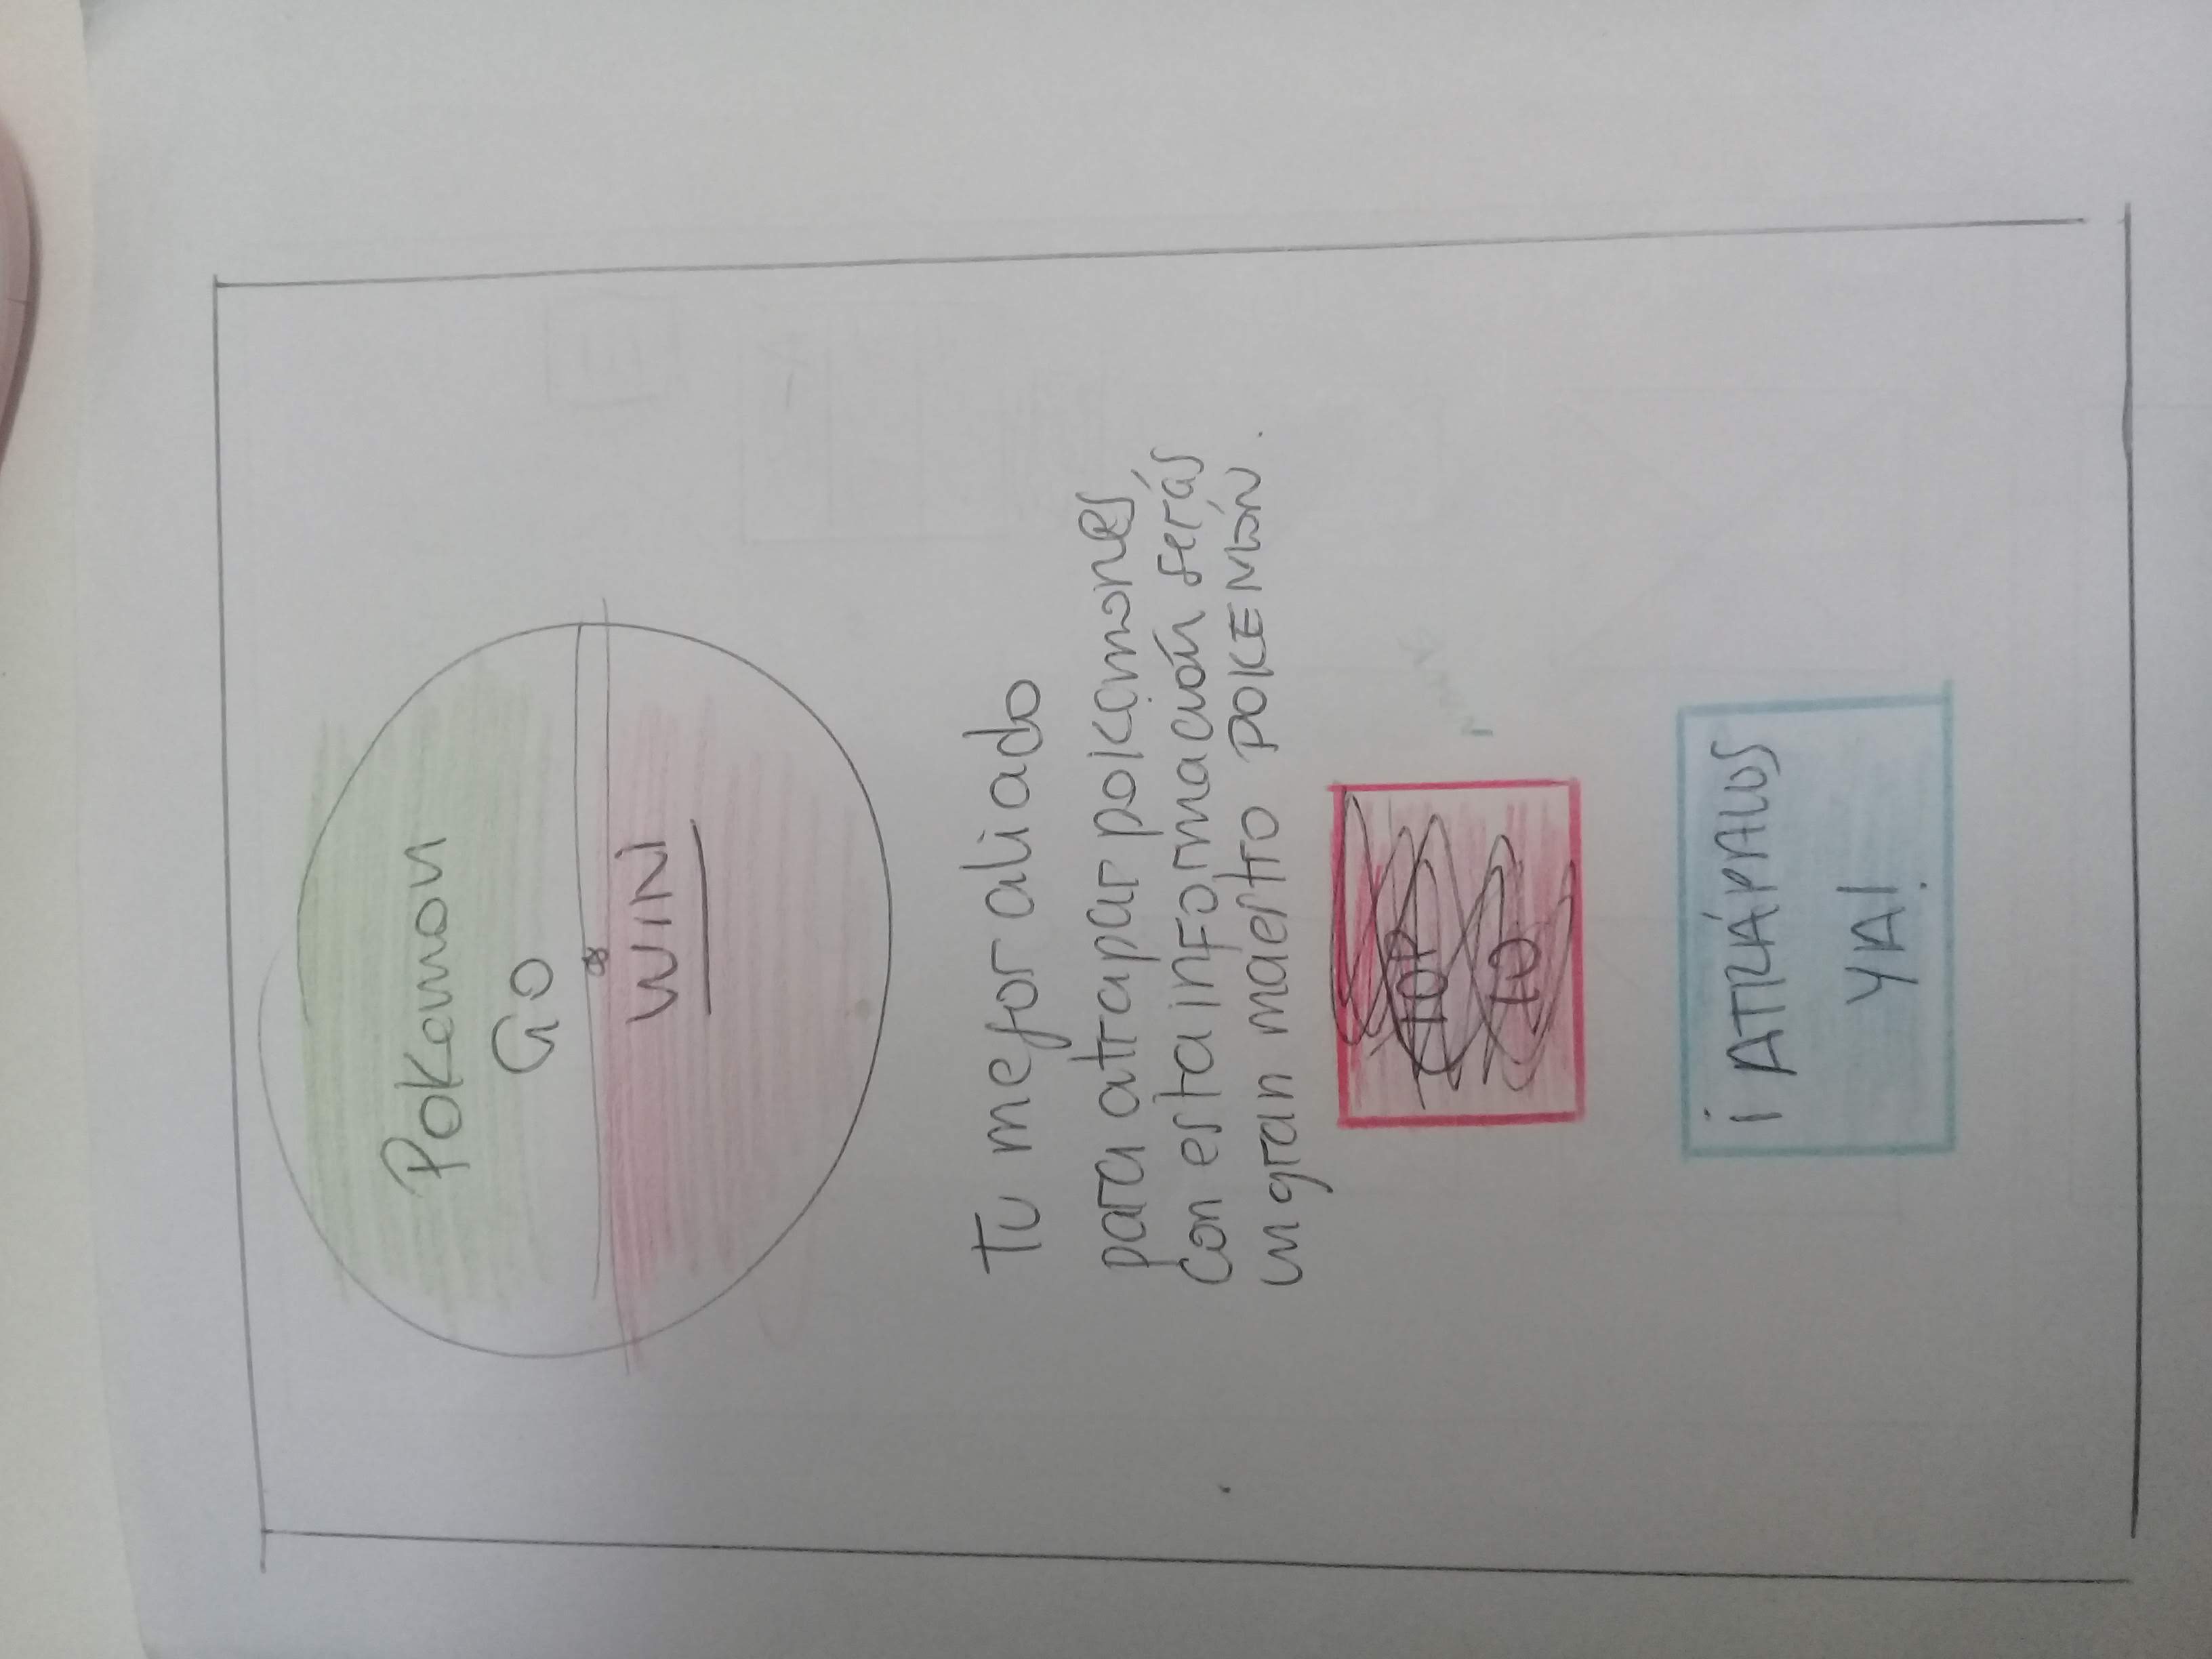 Pokemon
GO
WIN
Tu mejor aliado
para atrapar pokemones,
con esta información serás
un gran maestro POKEMÓN.
TOP
10
¡ATRÁPALOS
YA!